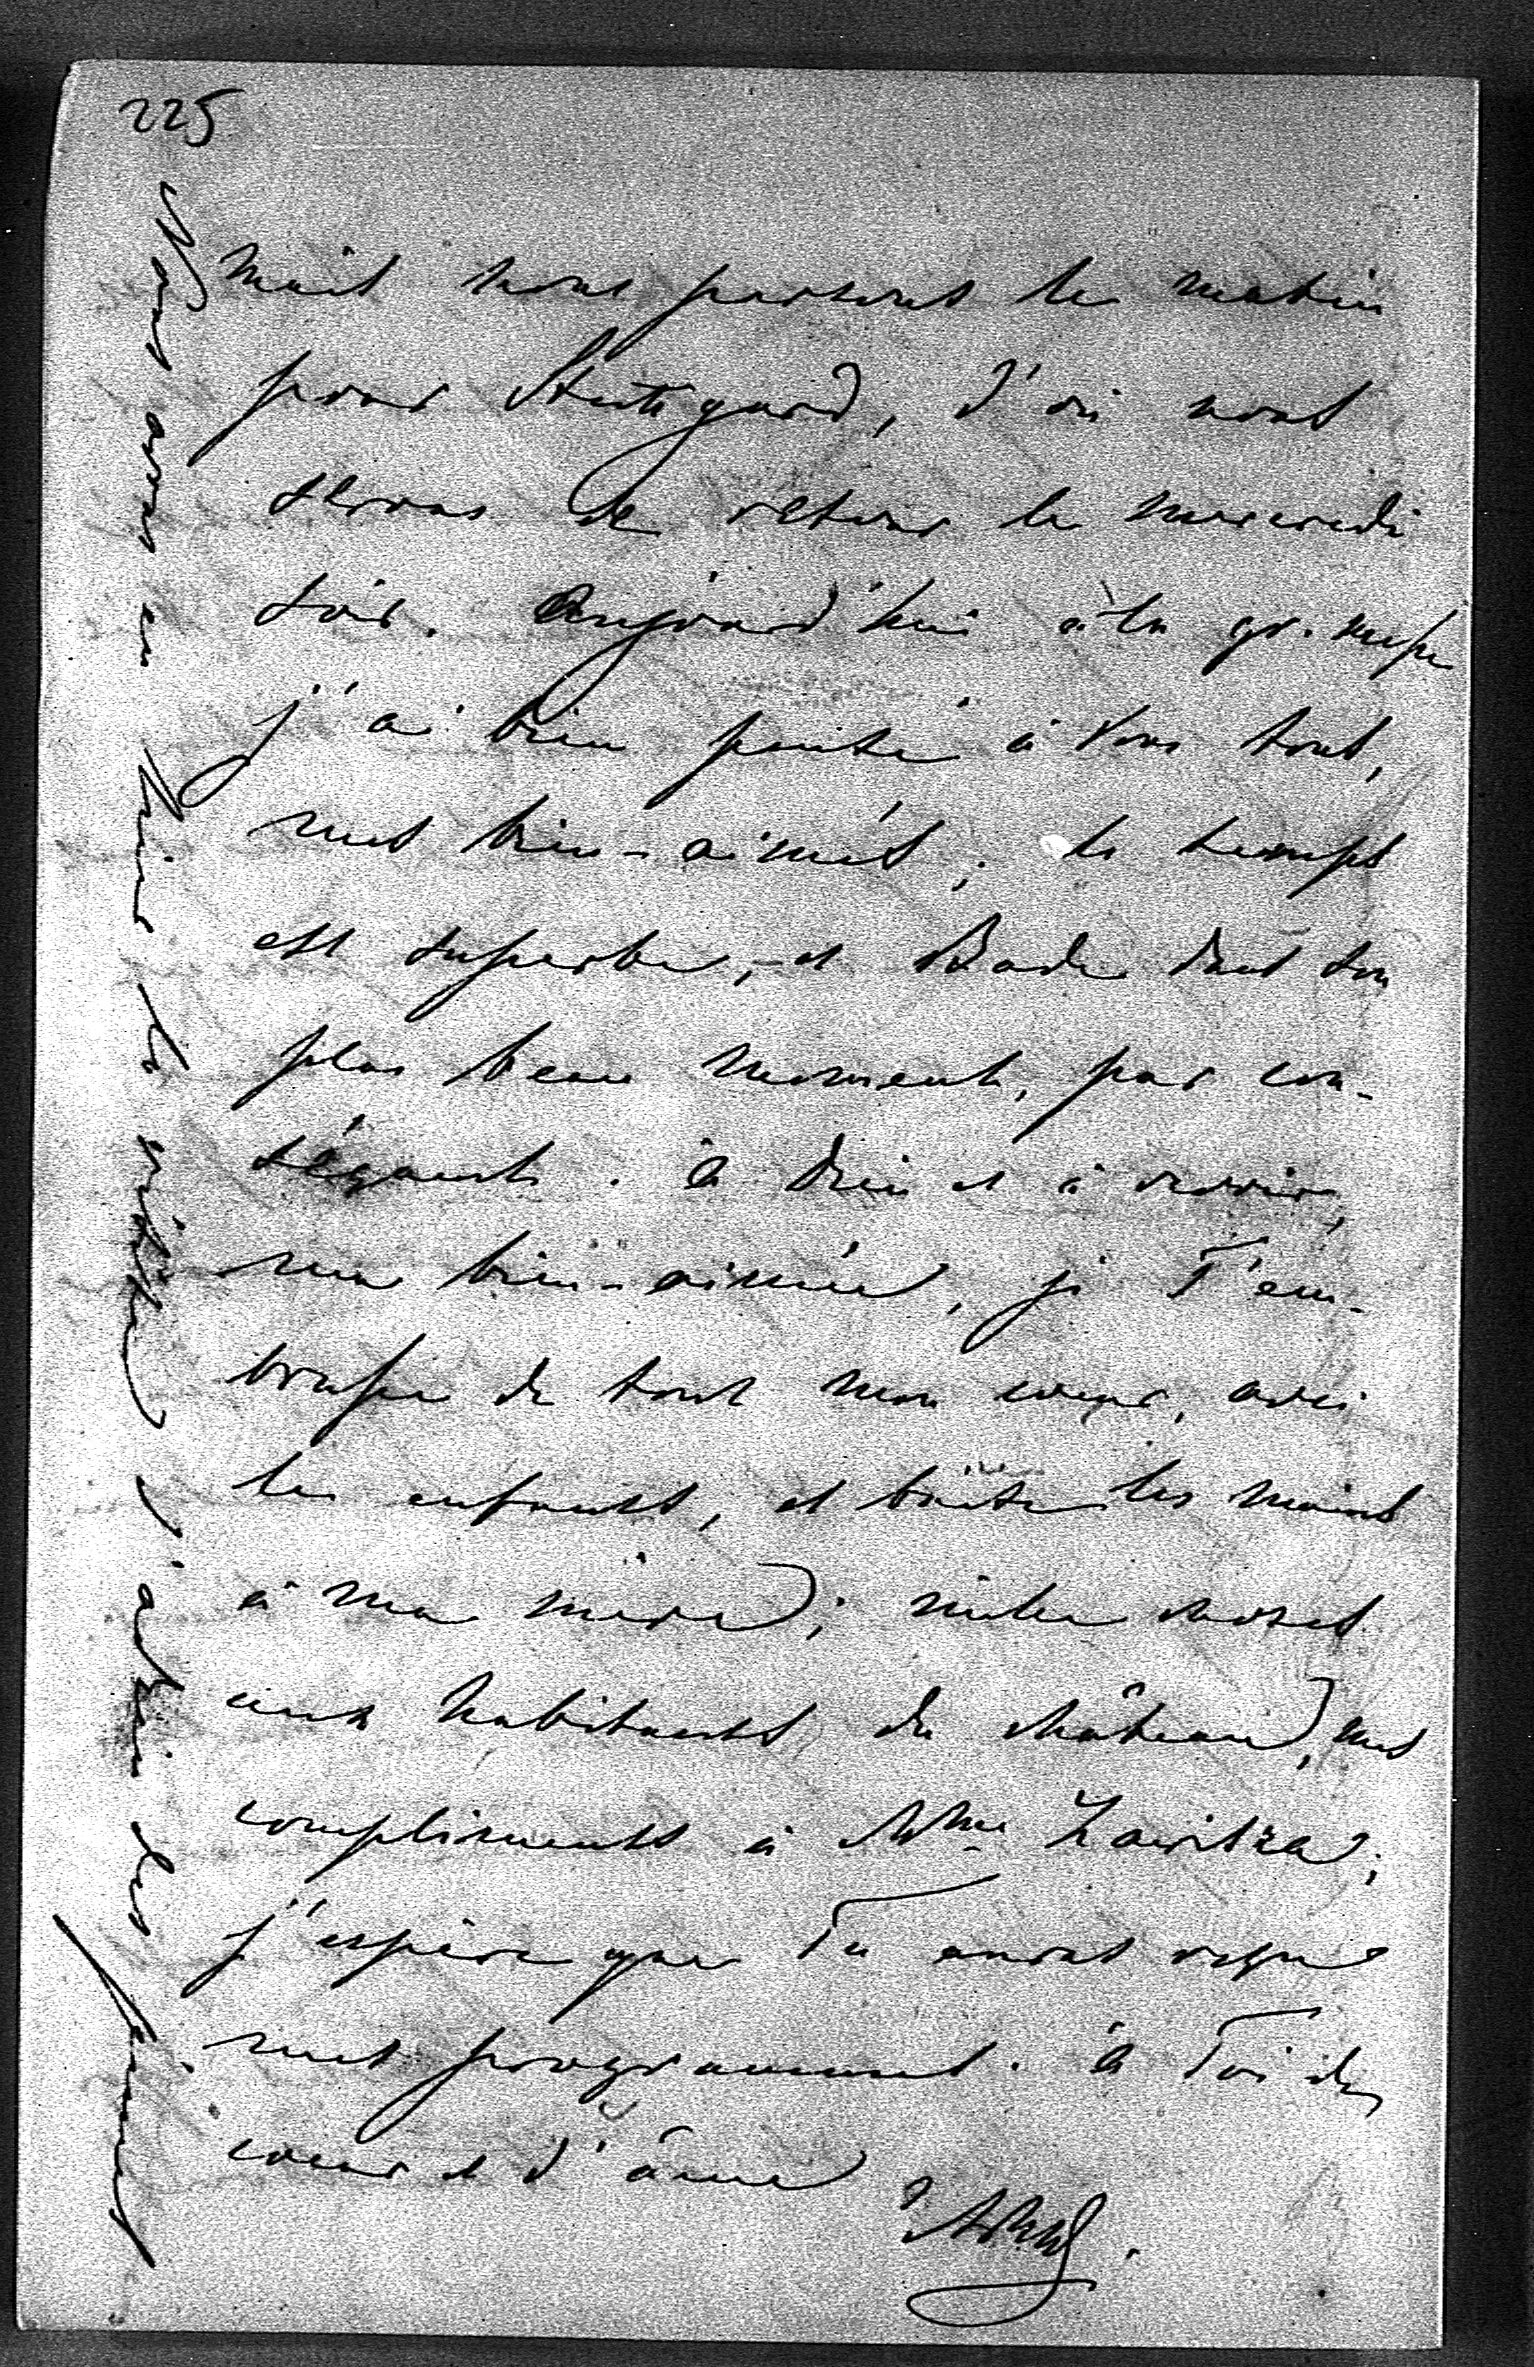 225
mais nous partons le matin
pour Stuttgard, d'où nous
serons de retour le mercredi
soir. Aujourd'hui à la gr. messe
j'ai bien pensé à Vous tous,
mes bien-aimés; le temps
est superbe, et Bade dans son
plus beau moment, par con-
séquent. à Dieu et à revoir,
ma bien-aimée, je T'em-
brasse de tout mon coeur, avec
les enfants, et baise les mains
à ma mère; mille choses
aux habitants du château, mes
compliments à Mme Zaritza;
j'espère que Tu auras reçu
mes programmes. à Toi de
coeur et d'âme
Nous avons eu hier le